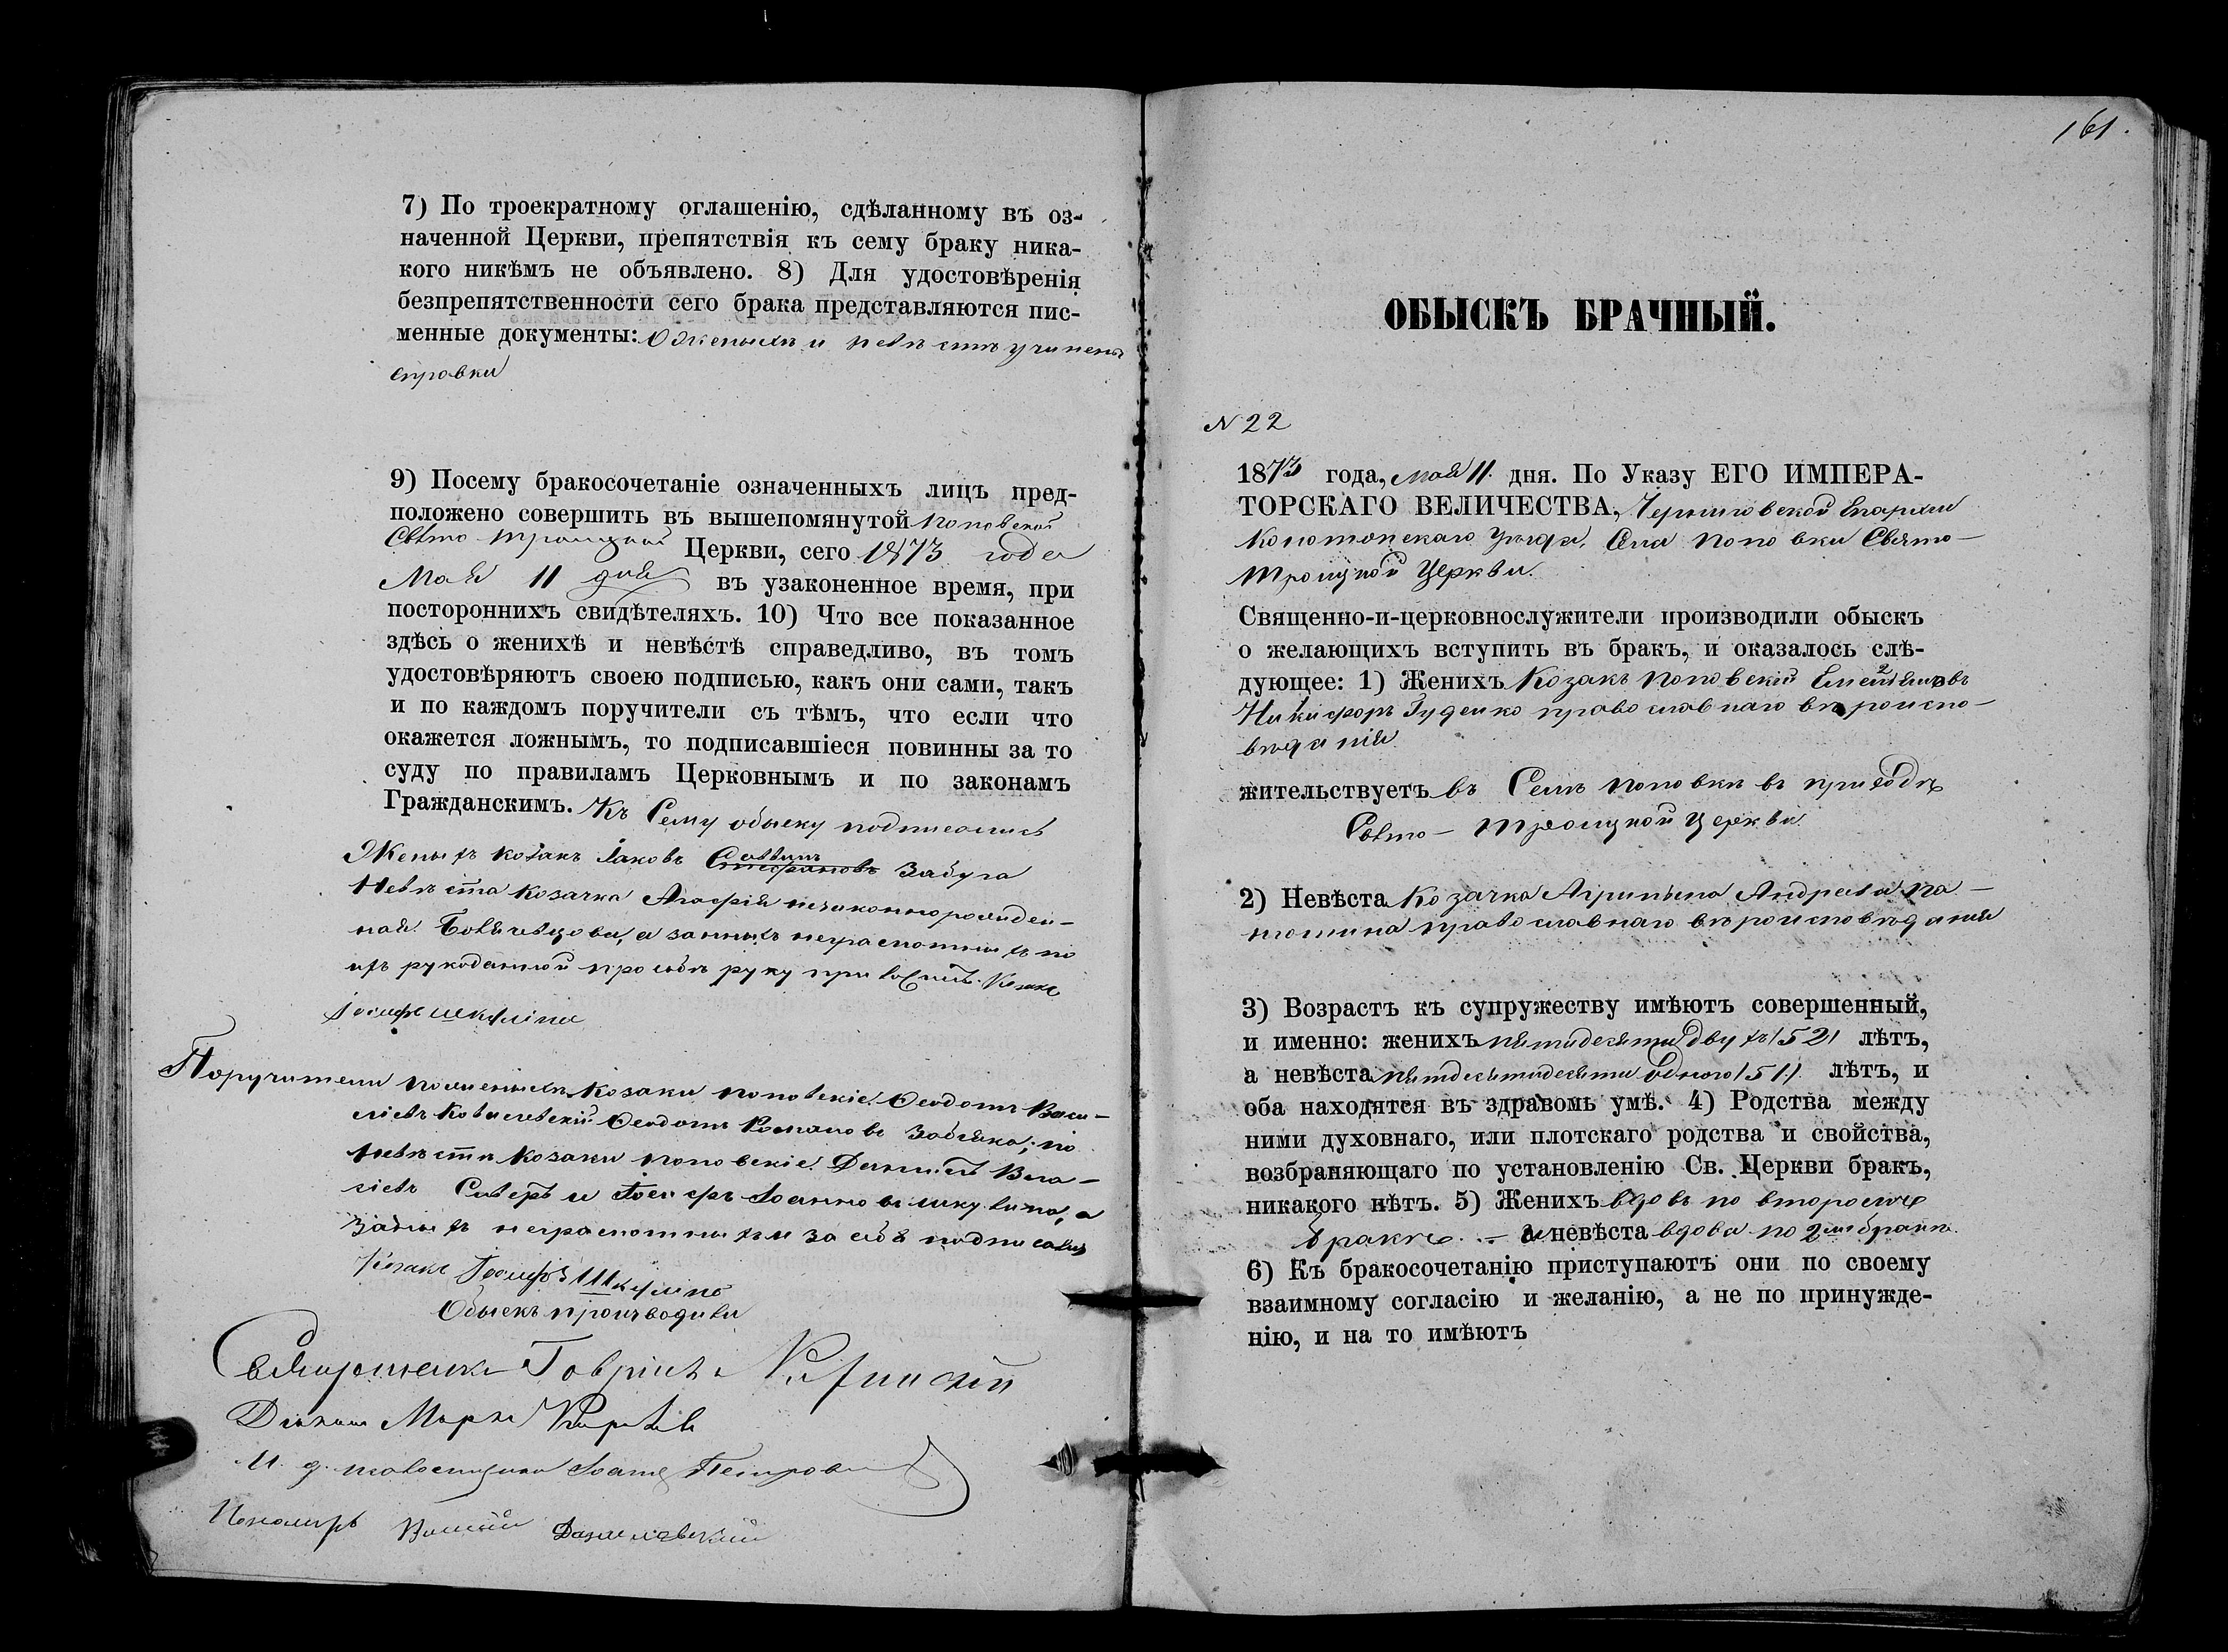 7) По троекратному оглашенію, сдѣланному въ оз-
наченной Церкви, препятствія къ сему браку ника-
кого никѣмъ не объявлено. 8) Для удостовѣренія
безпрепятственности сего брака представляются пис-
менные документы: О женыхѣ и невѣстѣ учинены
справки
9) Посему бракосочетаніе означенныхъ лицъ пред-
положено совершить въ вышепомянутой Поповской
Свято-Троицкой Церкви, сего 1873 года
Мая 11 дня въ узаконенное время, при
постороннихъ свидѣтеляхъ. 10) Что все показанное
здѣсь о женихѣ и невѣстѣ справедливо, въ томъ
удостовѣряютъ своею подписью, какъ они сами, такъ
и по каждомъ поручители съ тѣмъ, что если что
окажется ложнымъ, то подписавшіеся повинны за то
суду по правиламъ Церковнымъ и по законамъ
Гражданскимъ. Къ Сему обыску подписались
Женыхъ козакъ Іаковъ Забуга
Невѣста козачка Агафія незаконнорожден-
ная а за ныхъ неграмотныхъ по
ихъ рукоданной прозбѣ руку приложилъ Козакъ
Іосифъ Шкуліпа
Поручители по женыхѣ козаки поповскіе Феодотъ Васи-
ліевъ Феодотъ Романовъ Забіяка, по
невѣстѣ козаки поповскіе Даніилъ Вла-
сіевъ и Іосифъ Іоанновъ Шкуліпа, а
за ныхъ неграмотныхъ и за себя подписался
Козакъ Іосифъ Шкуліпа
Обыскъ производили
Священникъ Гавріилъ
Діаконъ Маркъ
И. д. псаломщика Іоаннъ Петровъ
Пономарь Данилевскій
161.
ОБЫСКЪ БРАЧНЫЙ.
N 22
1873 года, мая 11 дня. По Указу ЕГО ИМПЕРА-
ТОРСКАГО ВЕЛИЧЕСТВА, Черниговской Епархіи
Конотопскаго уѣзда, Села Поповки Свято-
Троицкой Церкви.
Священно-и-церковнослужители производили обыскъ
о желающихъ вступить въ бракъ, и оказалось слѣ-
дующее: 1) Женихъ Козакъ Поповскій Емельяновъ
Никифоръ Гуденко православнаго вѣроиспо-
вѣданія
жительствуетъ въ Селѣ Поповки въ приходѣ
Свято-Троицкой Церкви
2) Невѣста Козачка Агрипына Андреева Па-
нюшина православнаго вѣроисповѣданія
3) Возрастъ къ супружеству имѣютъ совершенный,
и именно: женихъ пятидесяти двухъ /52/ лѣтъ,
а невѣста пятдесятидесяти одного /51/ лѣтъ, и
оба находятся въ здравомъ умѣ. 4) Родства между
ними духовнаго, или плотскаго родства и свойства,
возбраняющаго по установленію Св. Церкви бракъ,
никакого нѣтъ. 5) Женихъ вдовъ по второмъ
бракѣ. – а невѣста вдова по 2мъ бракѣ.
6) Къ бракосочетанію приступаютъ они по своему
взаимному согласію и желанію, а не по принужде-
нію, и на то имѣютъ